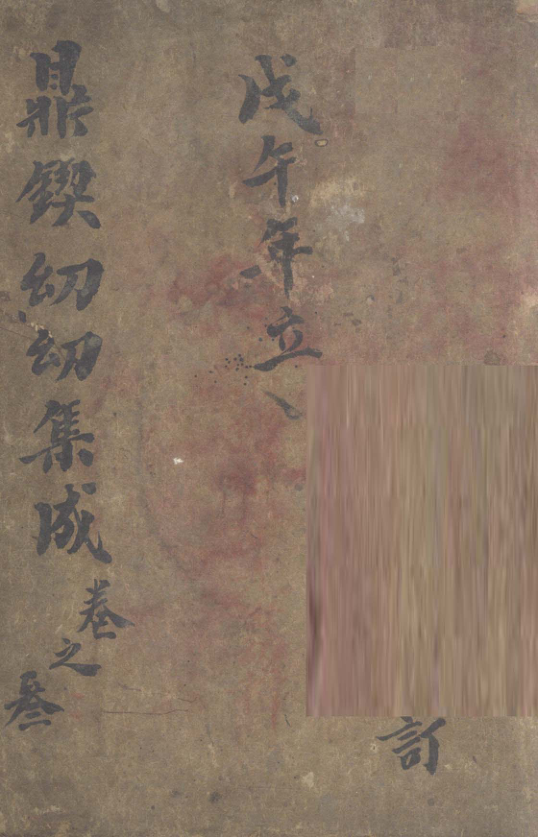 訂
戊午年立
鼎鍥幼幼集成卷之叁